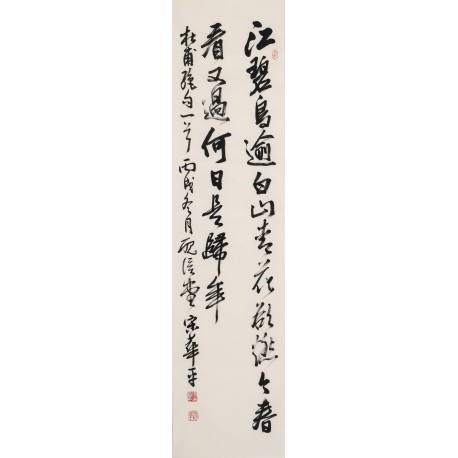 江碧鸟逾白山青花欲然今春
看又過何日是歸年
杜甫绝句一首 丙戌冬月 砚信堂 宋華平